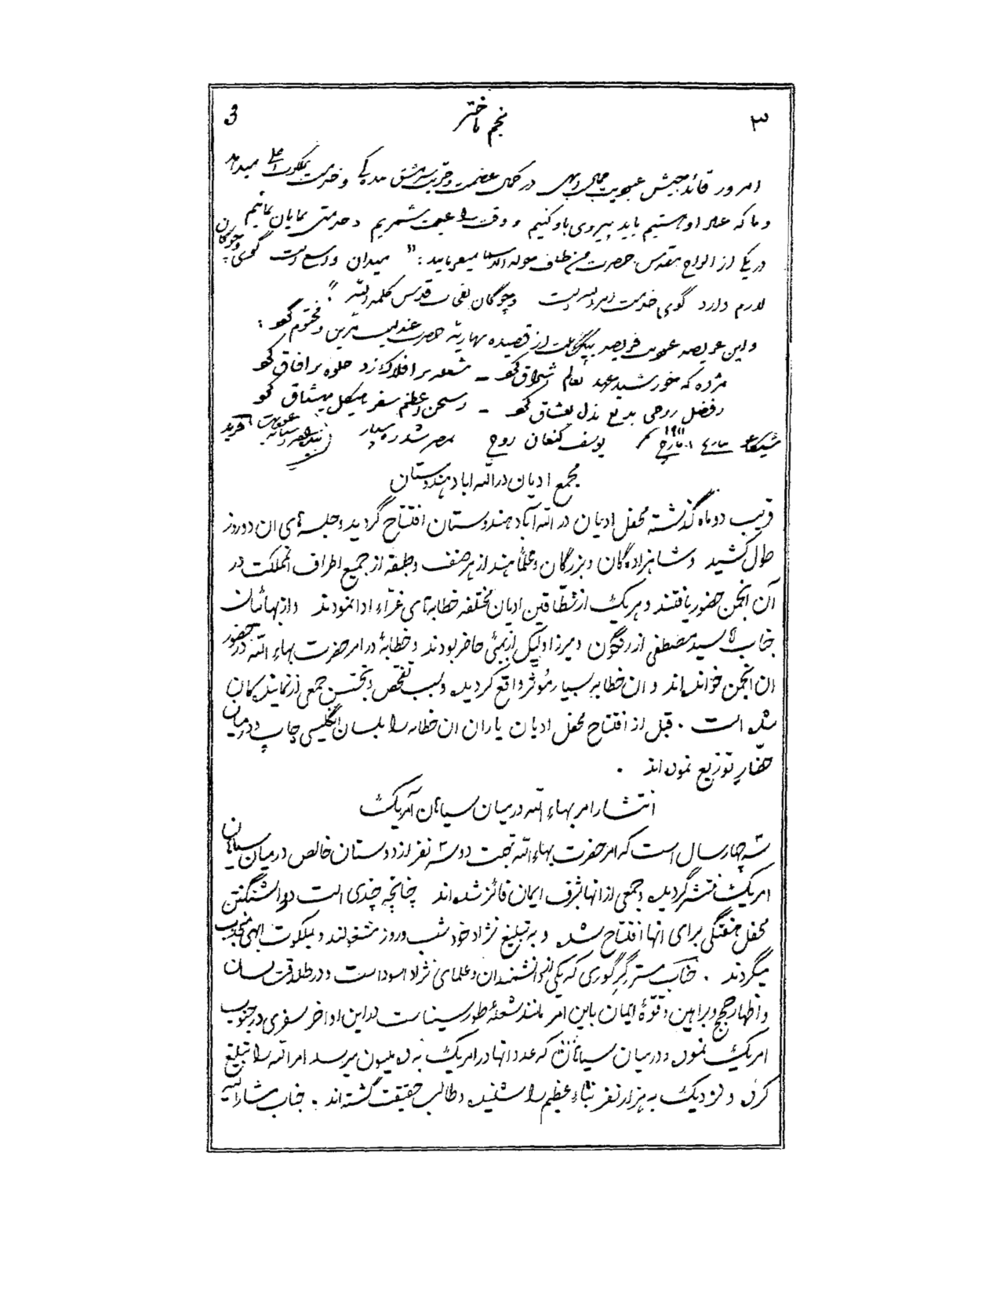 3 نجم باختر ۳
امروز قائد جیش عبودیت در کمال عظمت و خدمت بملکوت میدهد
و ما که عباد او هستیم باید پیروی باو کنیم و وقت را غنیمت شمریم و خدمتی نمایان نمائیم
در یکی از الواح مقدس حضرت من طاف حوله الاسماء میفرماید : " میدان وسیع است گوی و چوگان
لازم دارد گوی خدمت امر الله است و چوگان نفحات قدس کلمة الله "
و این عریضه عبودیت فریضه از قصیده بهاریه حضرت عندلیب شیرین و مختوم گشت :
مژده که خورشید عهد بعالم اشراق کرد ــ شعله بر افلاک زد جلوه بر آفاق کرد
ز فضل روحی بدیع بذل بعشاق کرد ــ
یوسف کنعان روح بمصر شد رهسپار
مجمع ادیان در الله اباد هندوستان
قریب دو ماه گذشته محفل ادیان در الله آباد هندوستان افتتاح گردید و جلسه‌های ان دو روز
طول کشید و شاهزادگان و بزرگان و علمای هند از هر صنف و طبقه از جمیع اطراف مملکت در
آن انجمن حضور یافتند و هریک از نطّاقین ادیان مختلفه خطابه‌های غرّاء ادا نمودند و از بهائیان
جناب سید مصطفی از رنگون و میرزا وکیل از بمبئی حاضر بودند و خطابهٔ در امر حضرت بهاء الله در حضور
ان انجمن خوانده‌اند و ان خطابه بسیار مؤثر واقع گردیده و سبب تفحّص و تجسّس جمعی از نمایندگان
شده است . قبل از افتتاح محفل ادیان یاران ان خطابه را بلسان انگلیسی چاپ و درمیان
حضّار توزیع نموده‌اند .
انتشار امر بهاء الله درمیان سیاهان آمریک
سه چهار سال است که امر حضرت بهاء الله تحت دو سه نفر از دوستان خالص درمیان سیاهان
امریک منتشر گردیده و جمعی از انها بشرف ایمان فائز شده‌اند چنانچه چندی است در واشنگتن
محفل هفتگی برای انها افتتاح شده و به تبلیغ نژاد خود شب و روز مشغولند و بملکوت ابهی منجذب
میگردند . جناب مستر گرگوری که یکی از دانشمندان و علمای نژاد اسود است و در طلاقت لسان
و اظهار حجج و براهین و قوّهٔ ایمان باین امر مانند شعلهٔ طور سیناست در این اواخر سفری در جنوب
امریک نموده و درمیان سیاهان که عدد انها در امریک به ده ملیون میرسد امر الله را تبلیغ
کرده و نزدیک به هزار نفر نباء عظیم را شنیده و طالب حقیقت گشته‌اند . جناب مشار الیه